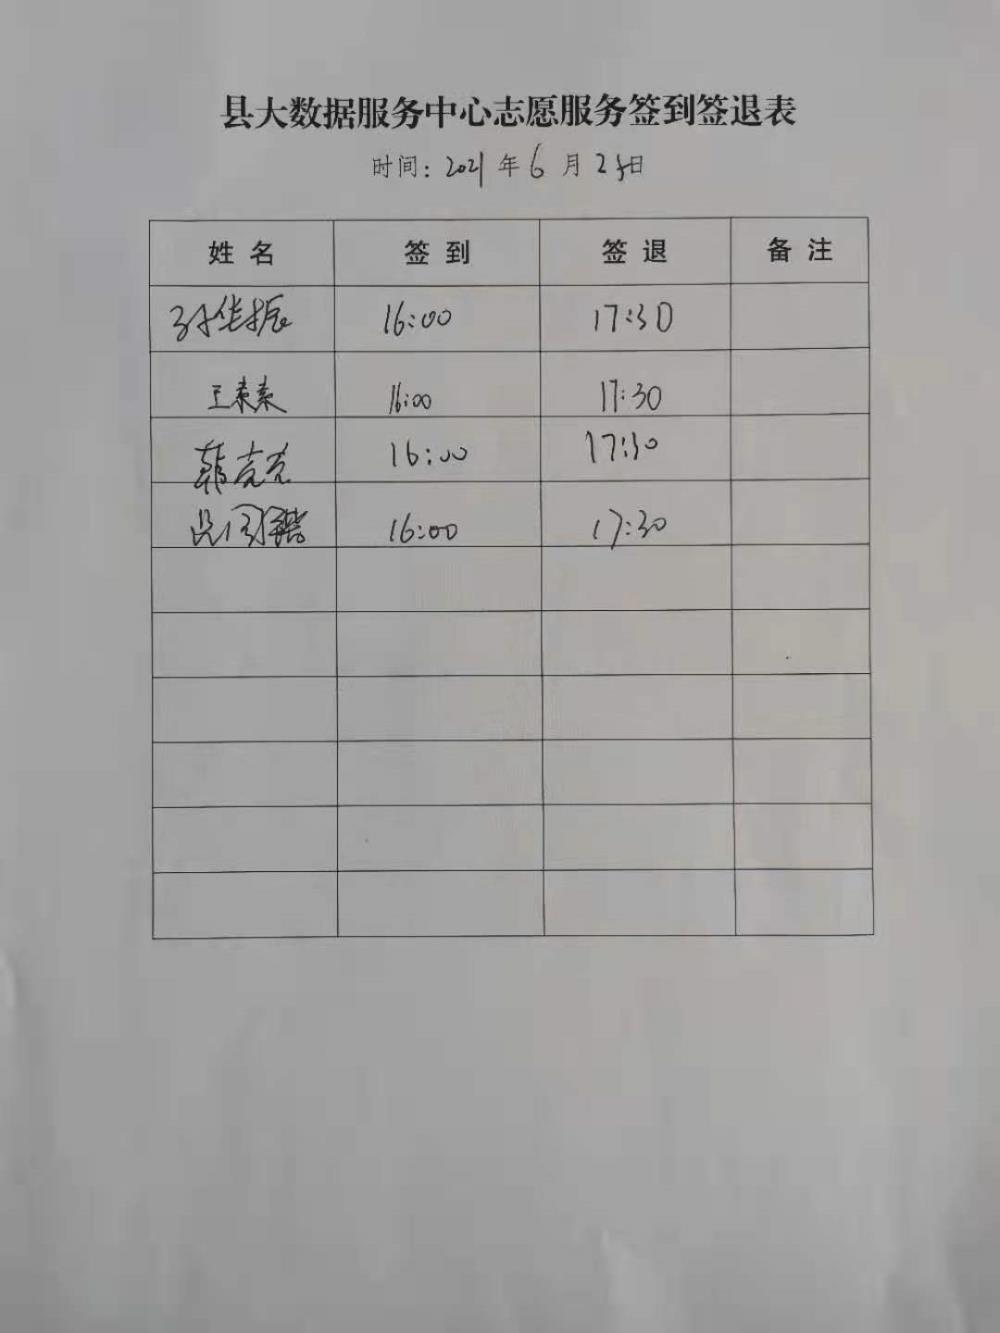 县大数据服务中心志愿服务签到签退表
时间: 2021 年 6 月 25日
姓名 签到 签退 备注
孙华振 16:00 17:30
王素素 16:00 17:30
16:00 17:30
16:00 17:30